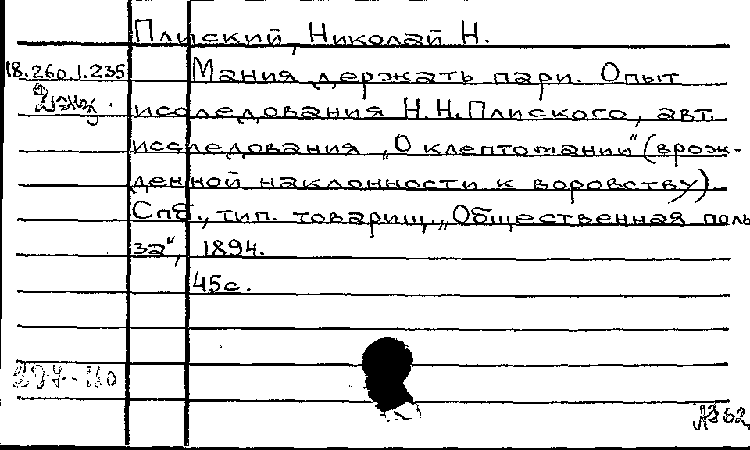 Плиский, Николай Н.
18.260.1.235 Мания держать пари. Опыт
2 экз. исследования Н.Н. Плиского, авт.
исследования „О клептомании" (врож-
денной наклонности к воровству)
Спб., тип. товарищ. „Общественная поль
за", 1894.
45 с.